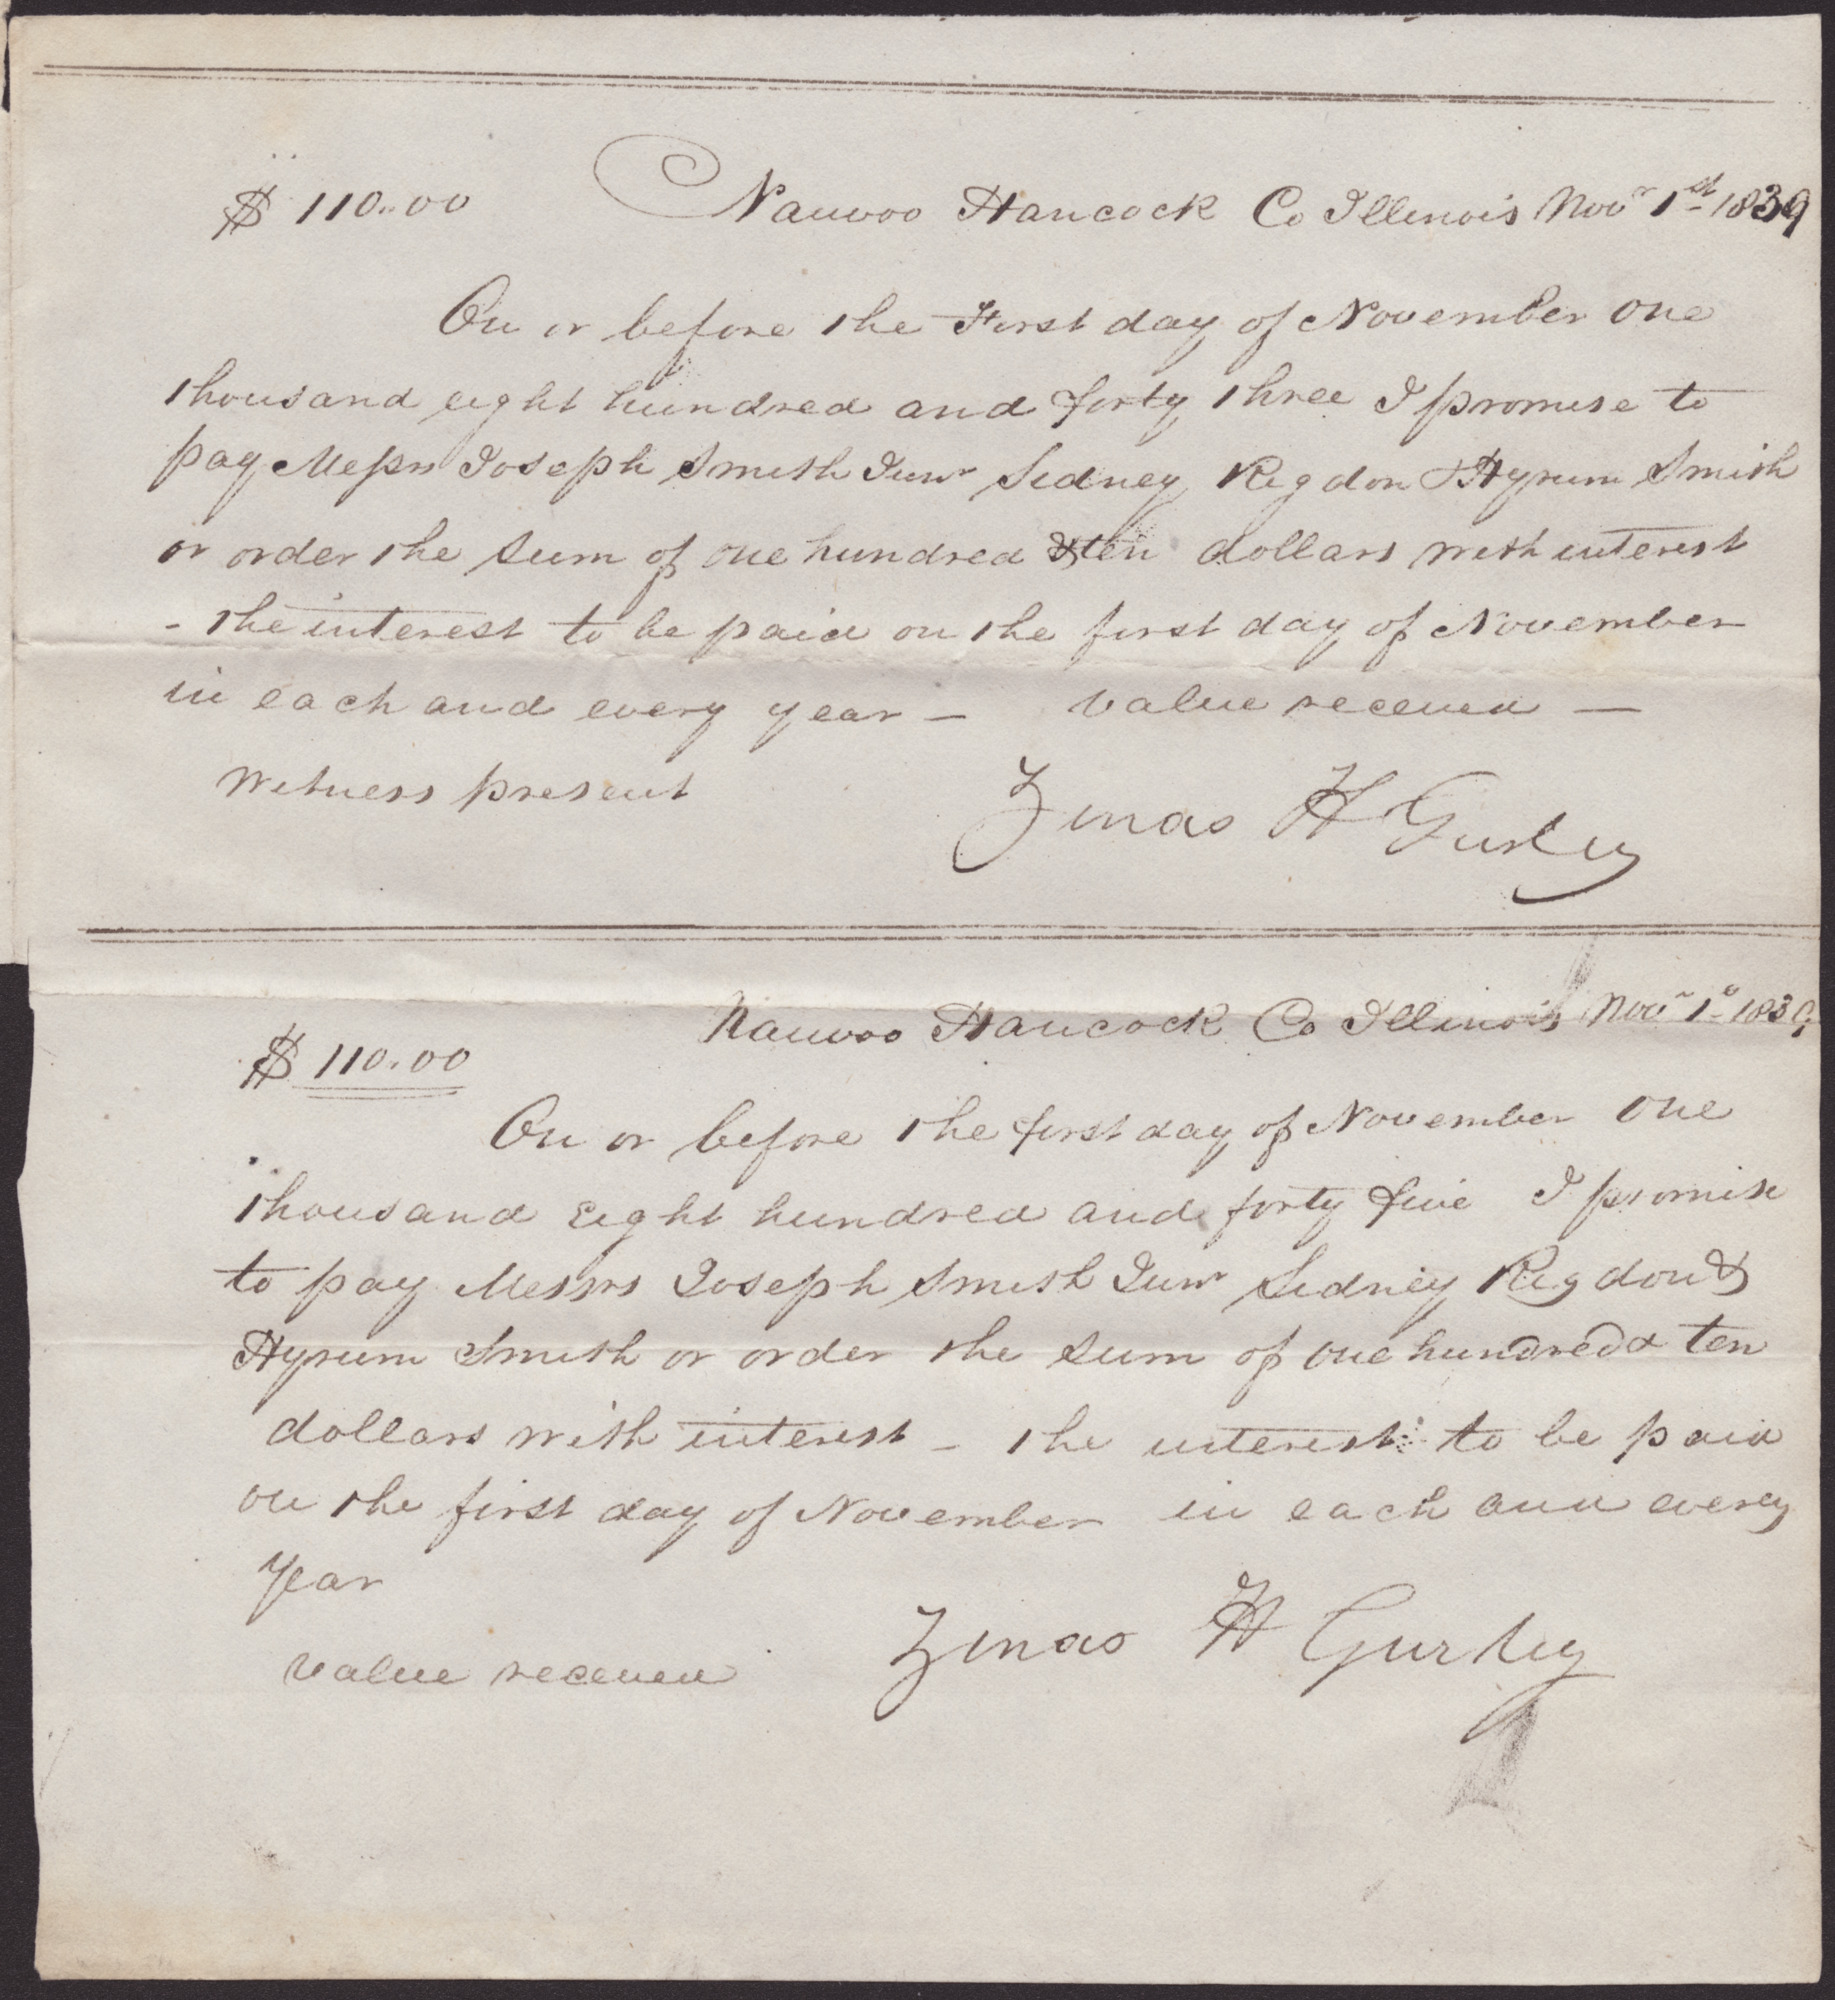 $ 110.00 Nauvoo Hancock Co Illinois Novr 1st 1839
On or before the First day of November one
thousand eight hundred and forty three I promise to
pay Messrs Joseph Smith Junr Sidney Rigdon & Hyrum Smith
or order the sum of one hundred & ten dollars with interest
- the interest to be paid on the first day of November
in each and every year — value received —
Witness present Zenas H Gurley
Nauvoo Hancock Co Illinois Novr 1st 1839
$ 110.00
On or before the first day of November one
thousand Eight hundred and forty five I promise
to pay Messrs Joseph Smith Junr Sidney Rigdon &
Hyrum Smith or order the sum of one hundred & ten
dollars with interest - the interest to be paid
on the first day of November in each and every
Year
value received Zenas H Gurley